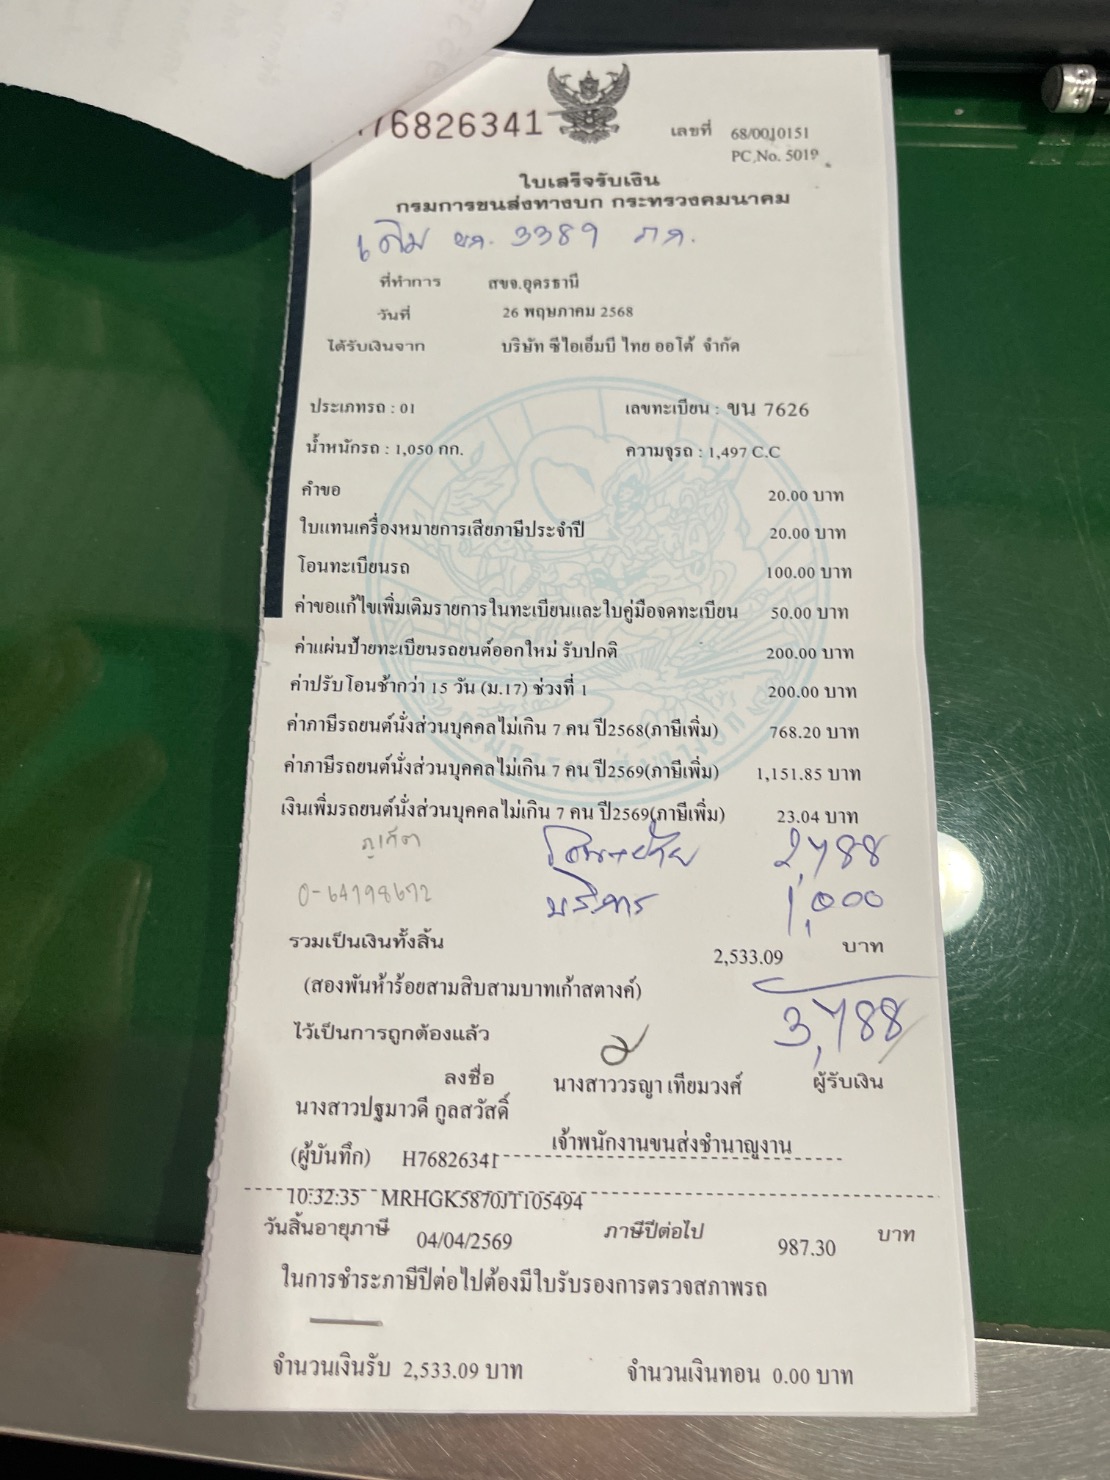 76826341
เลขที่ 68/0010151
PC.No. 5019
ใบเสร็จรับเงิน
กรมการขนส่งทางบก กระทรวงคมนาคม
เดิม ขค. 3389 ภก.
ที่ทำการ สขจ.อุดรธานี
วันที่ 26 พฤษภาคม 2568
ได้รับเงินจาก บริษัท ซีไอเอ็มบี ไทย ออโต้ จำกัด
ประเภทรถ : 01 เลขทะเบียน : ขน 7626
น้ำหนักรถ : 1,050 กก. ความจุรถ : 1,497 C.C
คำขอ 20.00 บาท
ใบแทนเครื่องหมายการเสียภาษีประจำปี 20.00 บาท
โอนทะเบียนรถ 100.00 บาท
ค่าขอแก้ไขเพิ่มเติมรายการในทะเบียนและใบคู่มือจดทะเบียน 50.00 บาท
ค่าแผ่นป้ายทะเบียนรถยนต์ออกใหม่ รับปกติ 200.00 บาท
ค่าปรับโอนช้ากว่า 15 วัน (ม.17) ช่วงที่ 1 200.00 บาท
ค่าภาษีรถยนต์นั่งส่วนบุคคลไม่เกิน 7 คน ปี2568(ภาษีเพิ่ม) 768.20 บาท
ค่าภาษีรถยนต์นั่งส่วนบุคคลไม่เกิน 7 คน ปี2569(ภาษีเพิ่ม) 1,151.85 บาท
เงินเพิ่มรถยนต์นั่งส่วนบุคคลไม่เกิน 7 คน ปี2569(ภาษีเพิ่ม) 23.04 บาท
ภูเก็ต โอน+ย้าย 2,788
0-64198672 บริการ 1,000
รวมเป็นเงินทั้งสิ้น 2,533.09 บาท
(สองพันห้าร้อยสามสิบสามบาทเก้าสตางค์)
3,788
ไว้เป็นการถูกต้องแล้ว
ลงชื่อ นางสาววรญา เทียมวงศ์ ผู้รับเงิน
นางสาวปฐมาวดี กูลสวัสดิ์
เจ้าพนักงานขนส่งชำนาญงาน
(ผู้บันทึก) H76826341
10:32:35 MRHGK5870JT105494
วันสิ้นอายุภาษี 04/04/2569 ภาษีปีต่อไป 987.30 บาท
ในการชำระภาษีปีต่อไปต้องมีใบรับรองการตรวจสภาพรถ
จำนวนเงินรับ 2,533.09 บาท จำนวนเงินทอน 0.00 บาท